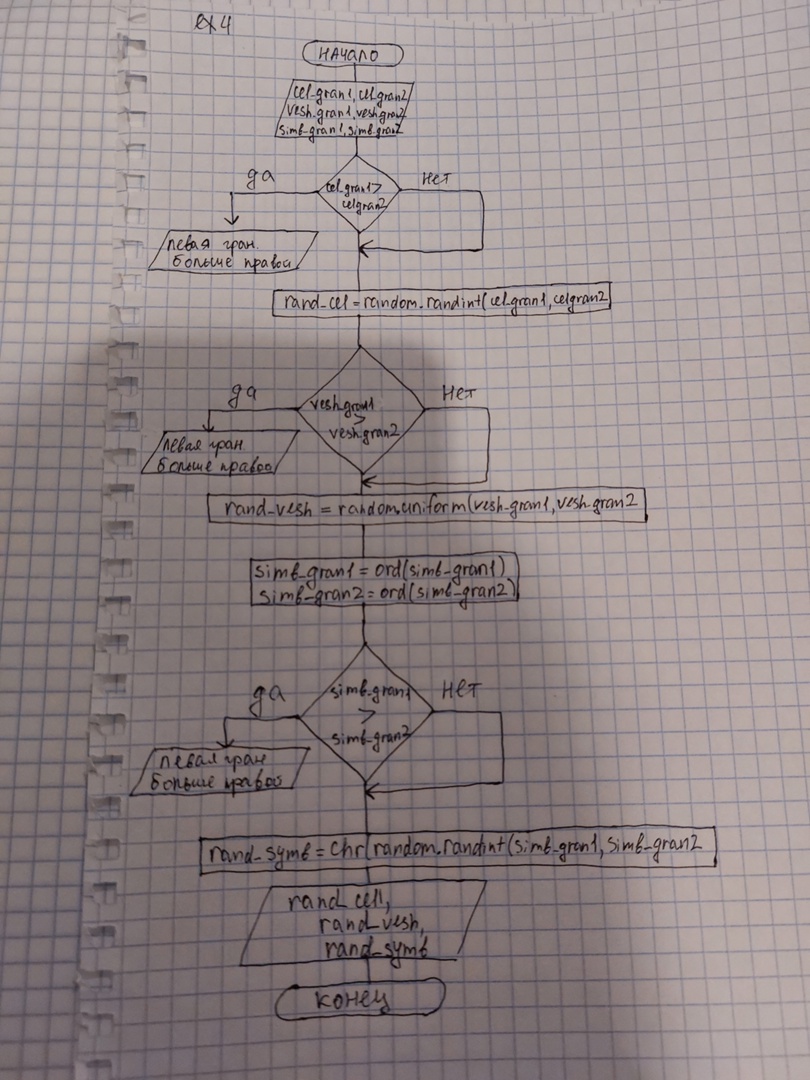 ex4
НАЧАЛО
cel_gran1, cel_gran2
vesh_gran1, vesh_gran2
simb_gran1, simb_gran2
да
cel_gran1>
celgran2
нет
левая гран.
больше правой
rand_cel = random.randint(cel_gran1, celgran2
да
vesh_gran1
>
vesh_gran2
нет
левая гран
больше правой
rand_vesh = random.uniform(vesh_gran1, vesh_gran2
simb_gran1 = ord(simb_gran1)
simb_gran2 = ord(simb_gran2)
да
simb_gran1
>
simb_gran2
нет
левая гран
больше правой
rand_symb = Chr(random.randint(simb_gran1, simb_gran2
rand_cell,
rand_vesh,
rand_symb
конец